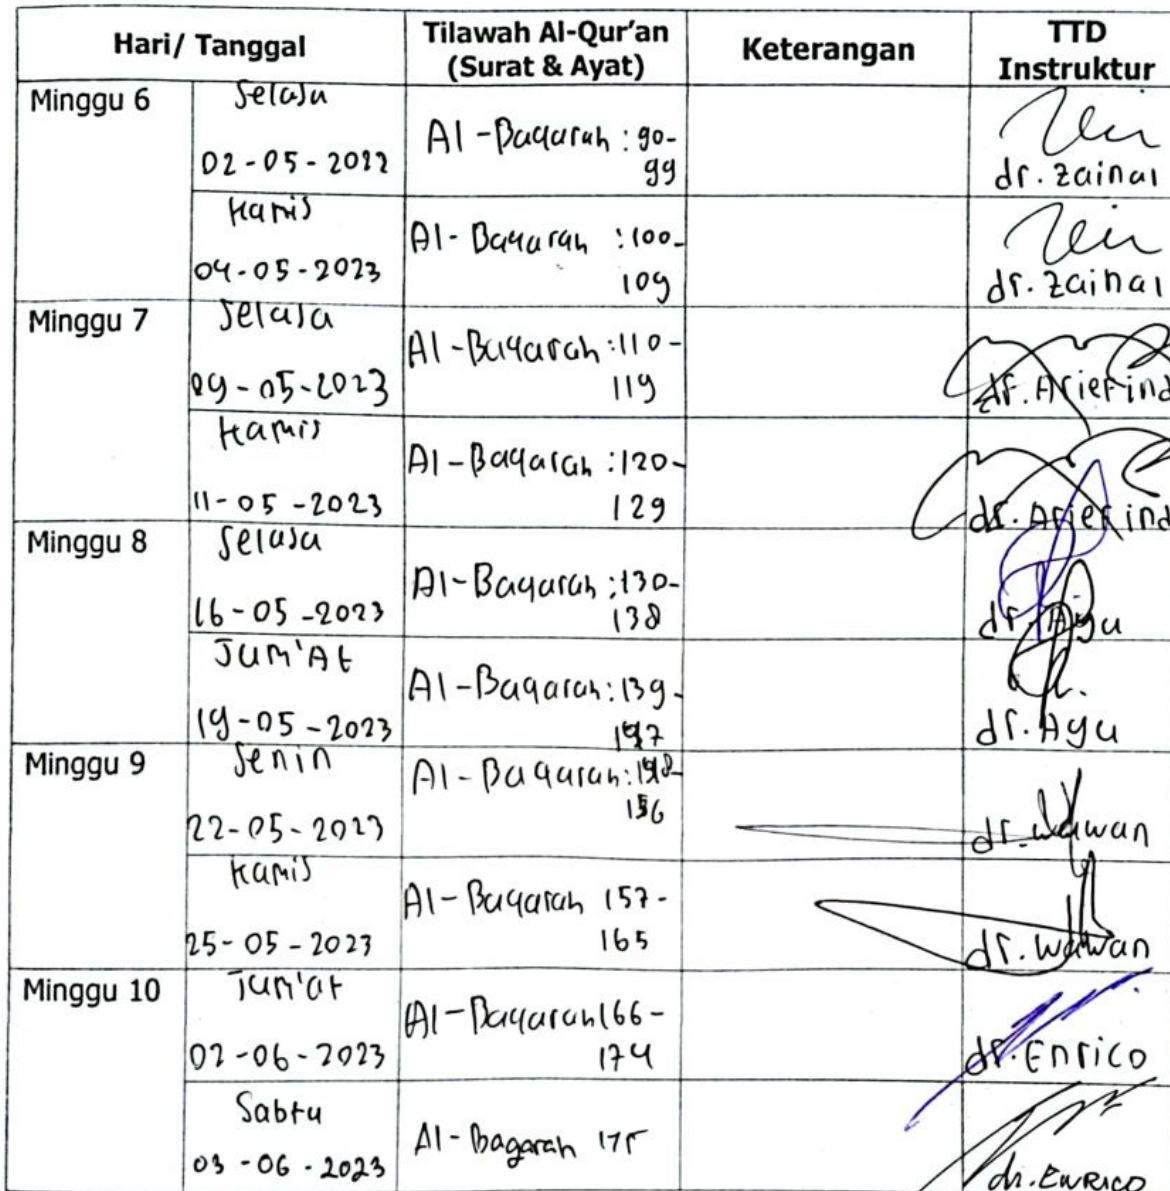 Hari/ Tanggal
Tilawah Al-Qur'an
(Surat & Ayat)
Keterangan
TTD
Instruktur
Minggu 6
Selasa
02-05-2022
Al-Baqarah : 90-
99
dr. Zainal
Kamis
04-05-2023
Al-Baqarah : 100-
109
dr. Zainal
Minggu 7
Selasa
09-05-2023
Al-Baqarah : 110-
119
dr. Arief ind
Kamis
11-05-2023
Al-Baqarah : 120-
129
dr. Arief ind
Minggu 8
Selasa
16-05-2023
Al-Baqarah : 130-
138
dr. Ayu
Jum'At
19-05-2023
Al-Baqarah : 139-
147
dr. Ayu
Minggu 9
Senin
22-05-2023
Al-Baqarah : 148-
156
dr. Wawan
Kamis
25-05-2023
Al-Baqarah 157-
165
dr. Wawan
Minggu 10
Jum'at
02-06-2023
Al-Baqarah 166-
174
dr. Enrico
Sabtu
03-06-2023
Al-Baqarah 175
dr. ENRICO